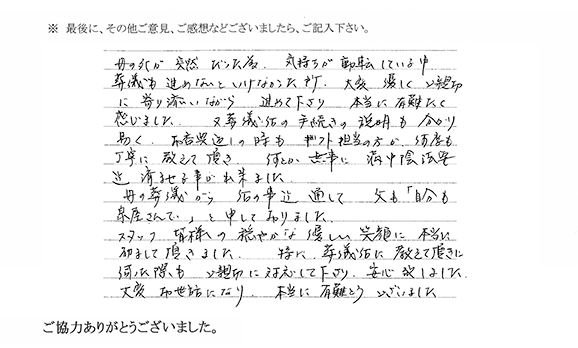 ※ 最後に、その他ご意見、ご感想などございましたら、ご記入下さい。
母の死が突然だった為、気持ちが動転している中
葬儀も進めないといけなかったが、大変優しくご親切
に寄り添いながら進めて下さり本当に有難たく
感じました。又葬儀後の手続きの説明も分かり
易く、香典返しの時もギフト担当の方が何度も
丁寧に教えて頂き、何とか無事に満中陰法要
迄済ませる事が出来ました。
母の葬儀から後の事迄通して父も「自分も
泉屋さんで」と申しておりました。
スタッフ皆様の穏やかな優しい笑顔に本当に
励まして頂きました。特に、葬儀後に教えて頂きに
伺った際もご親切に対応して下さり、安心致しました。
大変お世話になり、本当に有難とうございました
ご協力ありがとうございました。